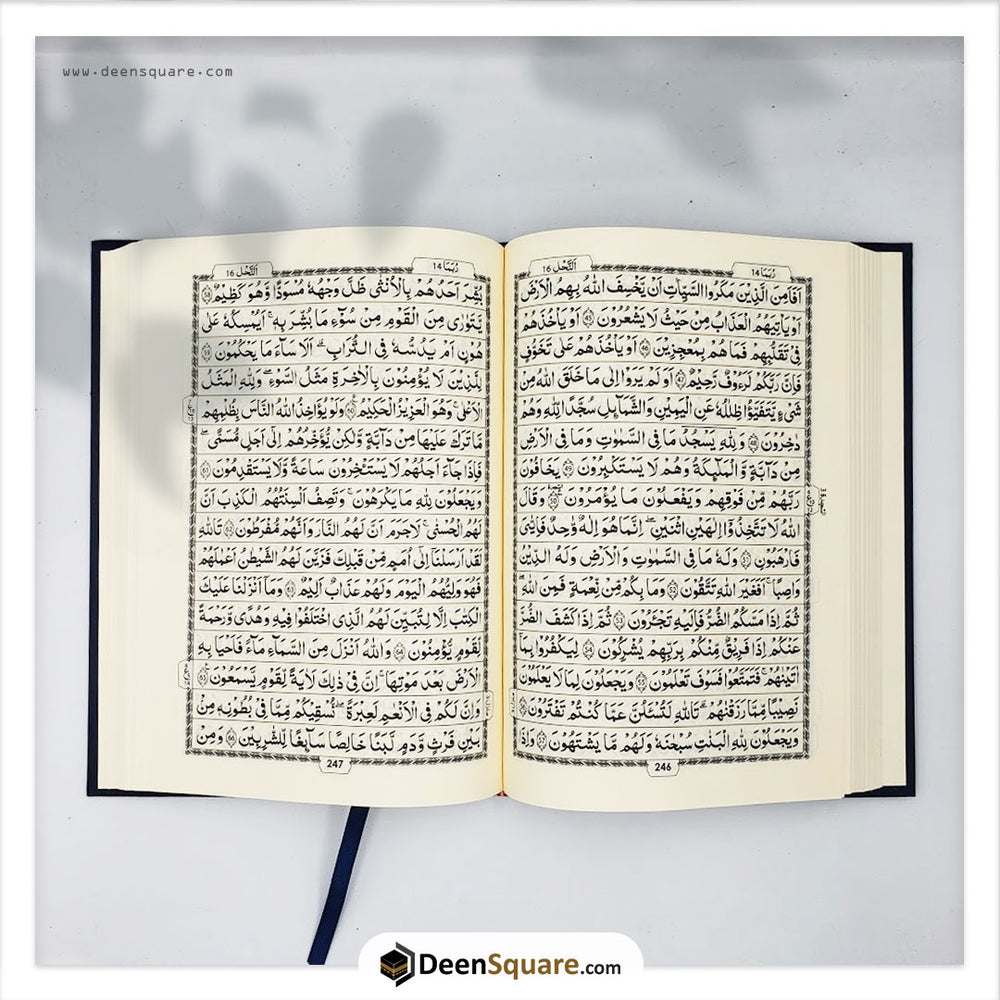 www.deensquare.com
رُبَمَا 14
اَلنَّحْل 16
اَفَاَمِنَ الَّذِيْنَ مَكَرُوا السَّيِّاٰتِ اَنْ يَّخْسِفَ اللّٰهُ بِهِمُ الْاَرْضَ
اَوْ يَاْتِيَهُمُ الْعَذَابُ مِنْ حَيْثُ لَا يَشْعُرُوْنَ ۝45 اَوْ يَاْخُذَهُمْ
فِيْ تَقَلُّبِهِمْ فَمَا هُمْ بِمُعْجِزِيْنَ ۝46 اَوْ يَاْخُذَهُمْ عَلٰى تَخَوُّفٍ
فَاِنَّ رَبَّكُمْ لَرَءُوْفٌ رَّحِيْمٌ ۝47 اَوَلَمْ يَرَوْا اِلٰى مَا خَلَقَ اللّٰهُ مِنْ
شَيْءٍ يَّتَفَيَّؤُا ظِلٰلُهٗ عَنِ الْيَمِيْنِ وَالشَّمَآئِلِ سُجَّدًا لِّلّٰهِ وَهُمْ
دٰخِرُوْنَ ۝48 وَلِلّٰهِ يَسْجُدُ مَا فِي السَّمٰوٰتِ وَمَا فِي الْاَرْضِ
مِنْ دَآبَّةٍ وَّالْمَلٰٓئِكَةُ وَهُمْ لَا يَسْتَكْبِرُوْنَ ۝49 يَخَافُوْنَ
رَبَّهُمْ مِّنْ فَوْقِهِمْ وَيَفْعَلُوْنَ مَا يُؤْمَرُوْنَ ۝50 وَقَالَ
اللّٰهُ لَا تَتَّخِذُوْٓا اِلٰهَيْنِ اثْنَيْنِ ۚ اِنَّمَا هُوَ اِلٰهٌ وَّاحِدٌ فَاِيَّايَ
فَارْهَبُوْنِ ۝51 وَلَهٗ مَا فِي السَّمٰوٰتِ وَالْاَرْضِ وَلَهُ الدِّيْنُ
وَاصِبًا ۚ اَفَغَيْرَ اللّٰهِ تَتَّقُوْنَ ۝52 وَمَا بِكُمْ مِّنْ نِّعْمَةٍ فَمِنَ اللّٰهِ
ثُمَّ اِذَا مَسَّكُمُ الضُّرُّ فَاِلَيْهِ تَجْـَٔرُوْنَ ۝53 ثُمَّ اِذَا كَشَفَ الضُّرَّ
عَنْكُمْ اِذَا فَرِيْقٌ مِّنْكُمْ بِرَبِّهِمْ يُشْرِكُوْنَ ۝54 لِيَكْفُرُوْا بِمَآ
اٰتَيْنٰهُمْ ۚ فَتَمَتَّعُوْا فَسَوْفَ تَعْلَمُوْنَ ۝55 وَيَجْعَلُوْنَ لِمَا لَا يَعْلَمُوْنَ
نَصِيْبًا مِّمَّا رَزَقْنٰهُمْ ۚ تَاللّٰهِ لَتُسْـَٔلُنَّ عَمَّا كُنْتُمْ تَفْتَرُوْنَ ۝56
وَيَجْعَلُوْنَ لِلّٰهِ الْبَنٰتِ سُبْحٰنَهٗ وَلَهُمْ مَّا يَشْتَهُوْنَ ۝57 وَاِذَا
246
رُبَمَا 14
اَلنَّحْل 16
بُشِّرَ اَحَدُهُمْ بِالْاُنْثٰى ظَلَّ وَجْهُهٗ مُسْوَدًّا وَّهُوَ كَظِيْمٌ ۝58
يَتَوَارٰى مِنَ الْقَوْمِ مِنْ سُوْٓءِ مَا بُشِّرَ بِهٖ ۚ اَيُمْسِكُهٗ عَلٰى
هُوْنٍ اَمْ يَدُسُّهٗ فِي التُّرَابِ ۗ اَلَا سَآءَ مَا يَحْكُمُوْنَ ۝59
لِلَّذِيْنَ لَا يُؤْمِنُوْنَ بِالْاٰخِرَةِ مَثَلُ السَّوْءِ ۚ وَلِلّٰهِ الْمَثَلُ
الْاَعْلٰى ۚ وَهُوَ الْعَزِيْزُ الْحَكِيْمُ ۝60 وَلَوْ يُؤَاخِذُ اللّٰهُ النَّاسَ بِظُلْمِهِمْ
مَّا تَرَكَ عَلَيْهَا مِنْ دَآبَّةٍ وَّلٰكِنْ يُّؤَخِّرُهُمْ اِلٰٓى اَجَلٍ مُّسَمًّى ۚ
فَاِذَا جَآءَ اَجَلُهُمْ لَا يَسْتَـْٔخِرُوْنَ سَاعَةً وَّلَا يَسْتَقْدِمُوْنَ ۝61
وَيَجْعَلُوْنَ لِلّٰهِ مَا يَكْرَهُوْنَ ۚ وَتَصِفُ اَلْسِنَتُهُمُ الْكَذِبَ اَنَّ
لَهُمُ الْحُسْنٰى ۚ لَا جَرَمَ اَنَّ لَهُمُ النَّارَ وَاَنَّهُمْ مُّفْرَطُوْنَ ۝62 تَاللّٰهِ
لَقَدْ اَرْسَلْنَآ اِلٰٓى اُمَمٍ مِّنْ قَبْلِكَ فَزَيَّنَ لَهُمُ الشَّيْطٰنُ اَعْمَالَهُمْ
فَهُوَ وَلِيُّهُمُ الْيَوْمَ وَلَهُمْ عَذَابٌ اَلِيْمٌ ۝63 وَمَآ اَنْزَلْنَا عَلَيْكَ
الْكِتٰبَ اِلَّا لِتُبَيِّنَ لَهُمُ الَّذِي اخْتَلَفُوْا فِيْهِ وَهُدًى وَّرَحْمَةً
لِّقَوْمٍ يُّؤْمِنُوْنَ ۝64 وَاللّٰهُ اَنْزَلَ مِنَ السَّمَآءِ مَآءً فَاَحْيَا بِهِ
الْاَرْضَ بَعْدَ مَوْتِهَا ۚ اِنَّ فِيْ ذٰلِكَ لَاٰيَةً لِّقَوْمٍ يَّسْمَعُوْنَ ۝65
وَاِنَّ لَكُمْ فِي الْاَنْعَامِ لَعِبْرَةً ۚ نُسْقِيْكُمْ مِّمَّا فِيْ بُطُوْنِهٖ مِنْۢ
بَيْنِ فَرْثٍ وَّدَمٍ لَّبَنًا خَالِصًا سَآئِغًا لِّلشّٰرِبِيْنَ ۝66 وَمِنْ
247
DeenSquare.com